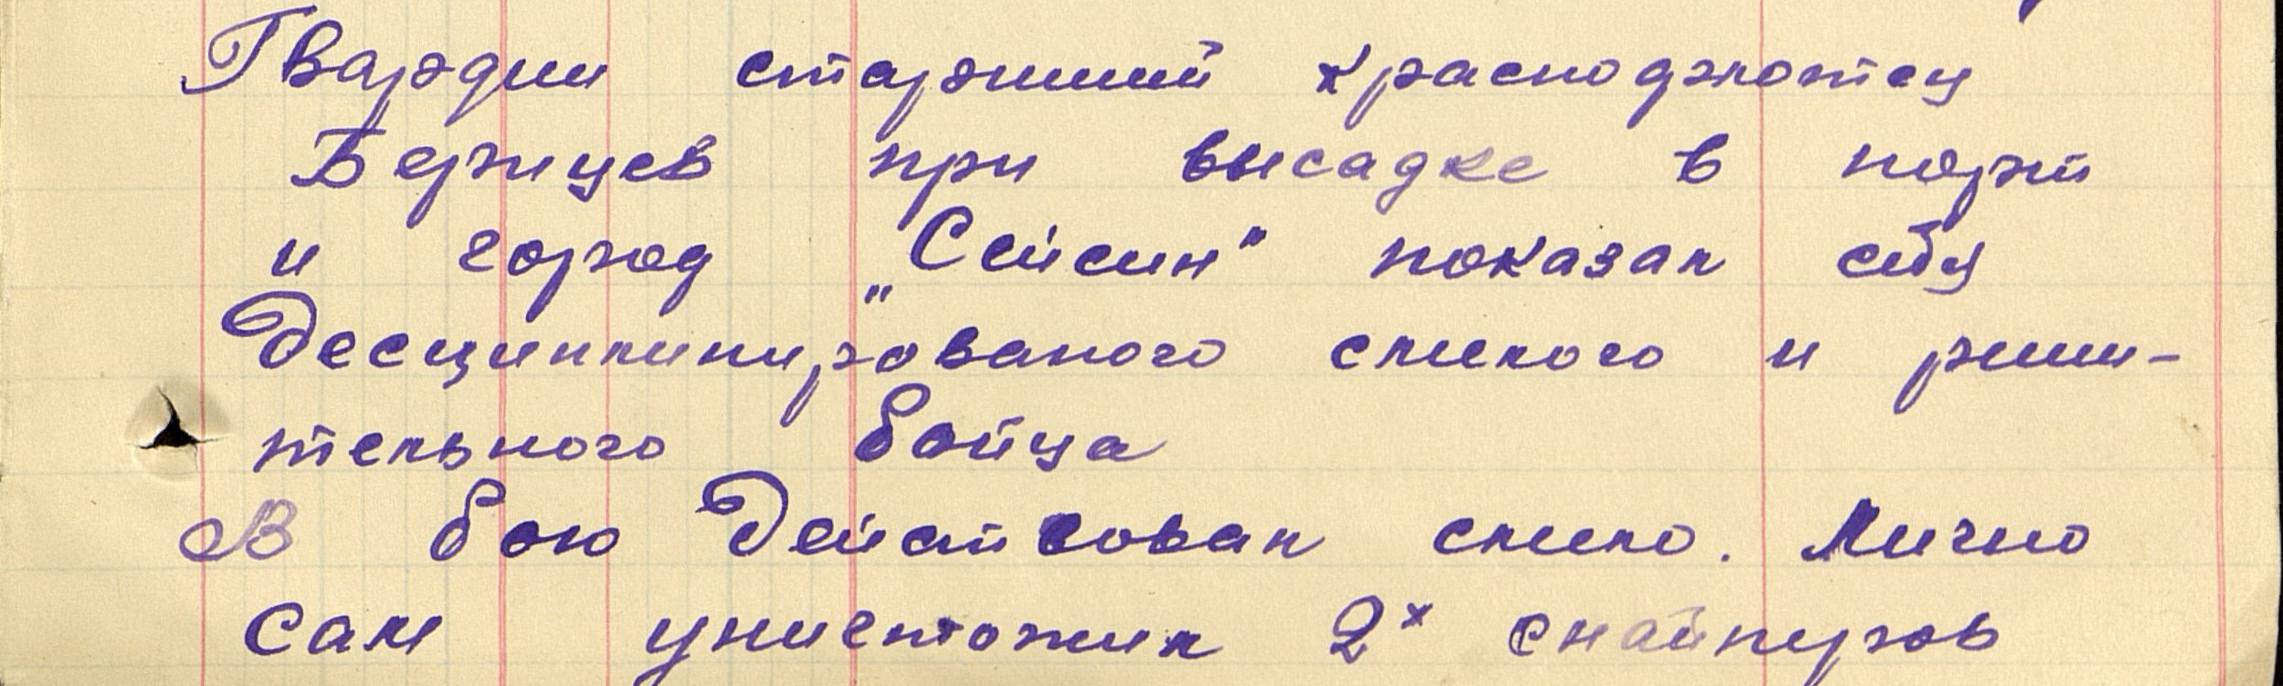 Гвардии старший краснофлотец
Бержцев при высадке в порт
и город „Сейсин" показал себя
Десциплинированого смелого и реши-
тельного бойца
В бою Действовал смело. Лично
сам уничтожил 2х снайперов